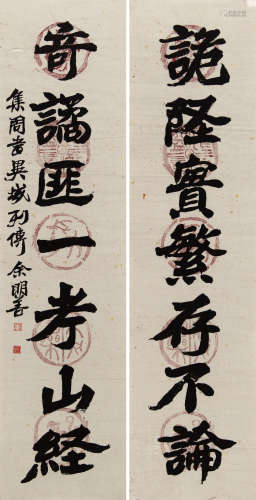 詭怪實繁存不論
奇譎匪一考山経
集周書異域列傳 余明善